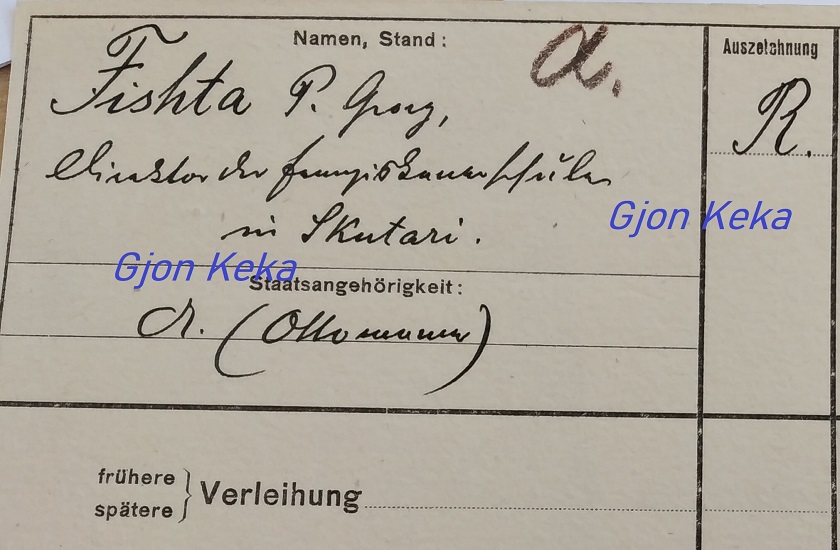 Namen, Stand:
a.
Auszeichnung
Fishta P. Georg,
R.
Direktor der Franziskanerschule
Gjon Keka
in Skutari.
Gjon Keka
Staatsangehörigkeit:
A. (Ottomane)
frühere
spätere } Verleihung